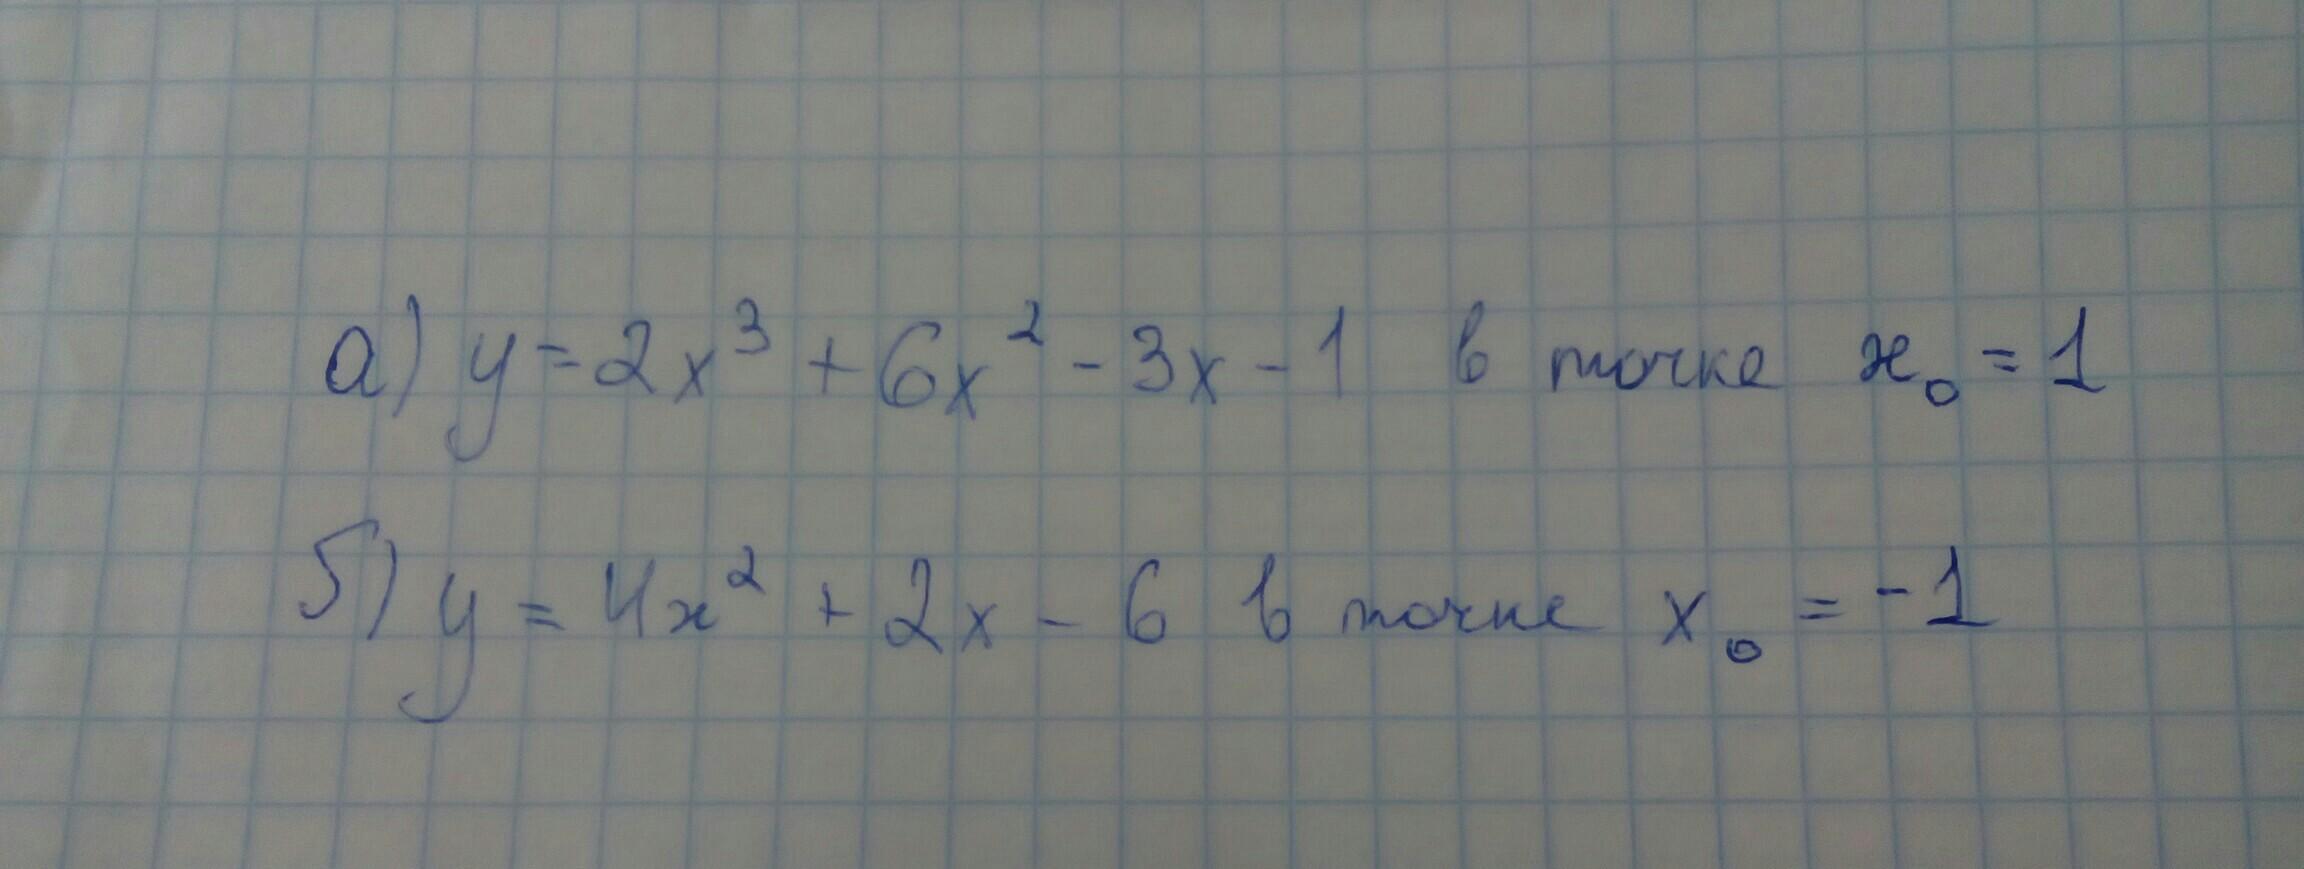 а) y = 2x³ + 6x² - 3x - 1 в точке x₀ = 1
б) y = 4x² + 2x - 6 в точке x₀ = -1